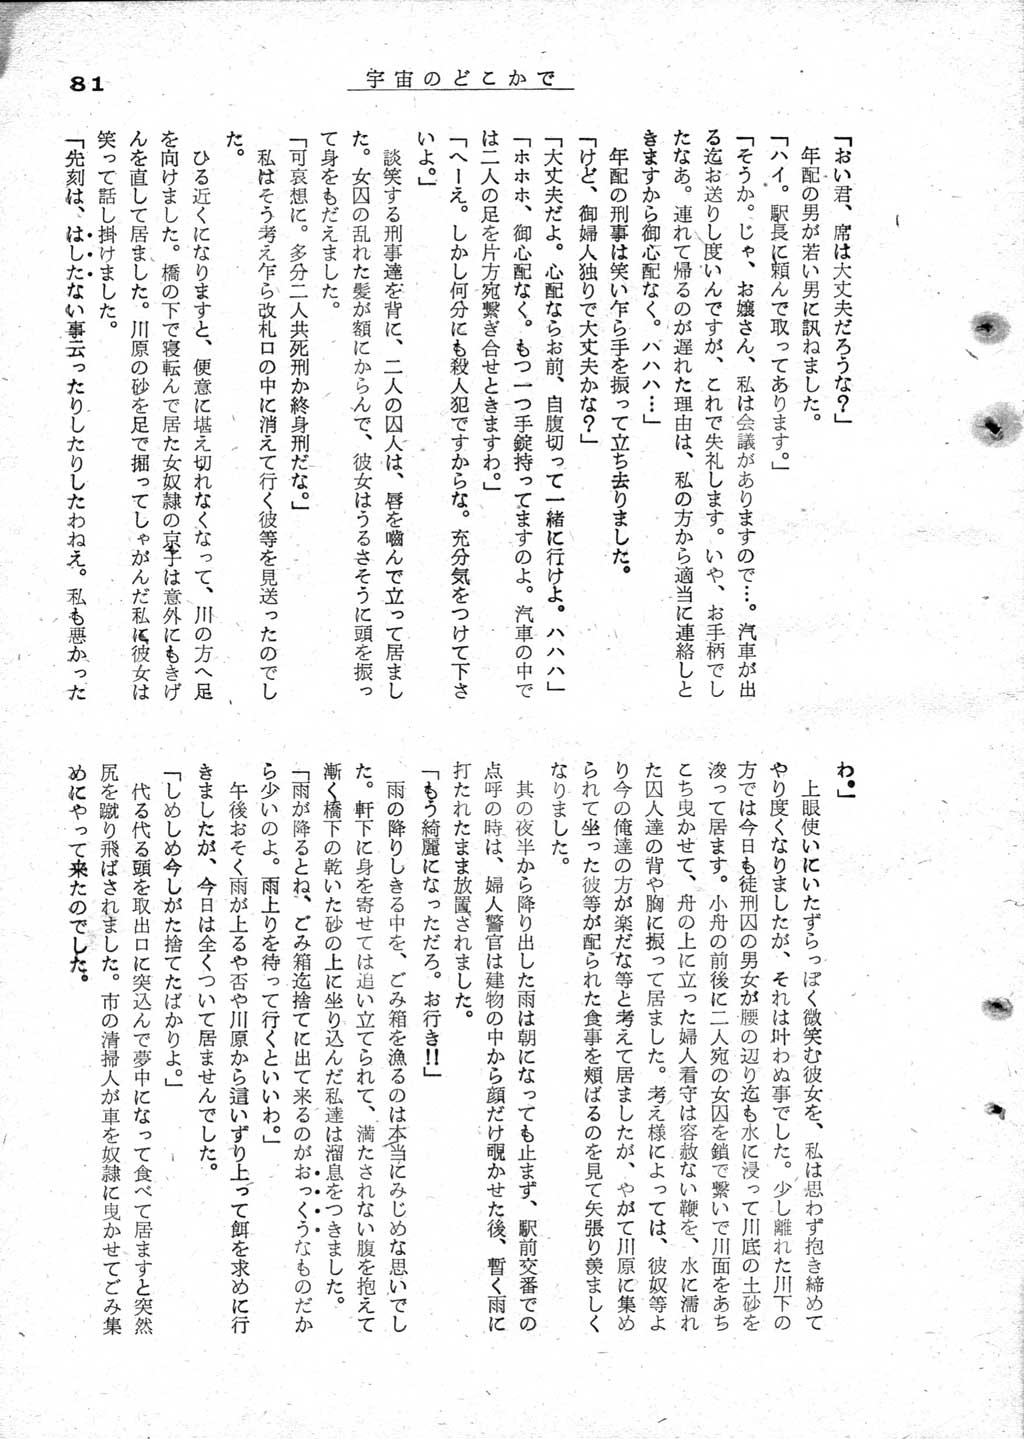 81
宇宙のどこかで
「おい君、席は大丈夫だろうな?」
年配の男が若い男に訊ねました。
「ハイ。駅長に頼んで取ってあります。」
「そうか。じゃ、お嬢さん、私は会議がありますので…。汽車が出
る迄お送りし度いんですが、これで失礼します。いや、お手柄でし
たなあ。連れて帰るのが遅れた理由は、私の方から適当に連絡しと
きますから御心配なく。ハハハ…」
年配の刑事は笑い乍ら手を振って立ち去りました。
「けど、御婦人独りで大丈夫かな?」
「大丈夫だよ。心配ならお前、自腹切って一緒に行けよ。ハハハ」
「ホホホ、御心配なく。もつ一つ手錠持ってますのよ。汽車の中で
は二人の足を片方宛繋ぎ合せときますわ。」
「へーえ。しかし何分にも殺人犯ですからな。充分気をつけて下さ
いよ。」
談笑する刑事達を背に、二人の囚人は、唇を嚙んで立って居まし
た。女囚の乱れた髪が額にからんで、彼女はうるさそうに頭を振っ
て身をもだえました。
「可哀想に。多分二人共死刑か終身刑だな。」
私はそう考え乍ら改札口の中に消えて行く彼等を見送ったのでし
た。
ひる近くになりますと、便意に堪え切れなくなって、川の方へ足
を向けました。橋の下で寝転んで居た女奴隷の京子は意外にもきげ
んを直して居ました。川原の砂を足で掘ってしゃがんだ私に彼女は
笑って話し掛けました。
「先刻は、はしたない事云ったりしたりしたわねえ。私も悪かった
わ。」
上眼使いにいたずらっぽく微笑む彼女を、私は思わず抱き締めて
やり度くなりましたが、それは叶わぬ事でした。少し離れた川下の
方では今日も徒刑囚の男女が腰の辺り迄も水に浸って川底の土砂を
浚って居ます。小舟の前後に二人宛の女囚を鎖で繋いで川面をあち
こち曳かせて、舟の上に立った婦人看守は容赦ない鞭を、水に濡れ
た囚人達の背や胸に振って居ました。考え様によっては、彼奴等よ
り今の俺達の方が楽だな等と考えて居ましたが、やがて川原に集め
られて坐った彼等が配られた食事を頰ばるのを見て矢張り羨ましく
なりました。
其の夜半から降り出した雨は朝になっても止まず、駅前交番での
点呼の時は、婦人警官は建物の中から顔だけ覗かせた後、暫く雨に
打たれたまま放置されました。
「もう綺麗になっただろ。お行き!!」
雨の降りしきる中を、ごみ箱を漁るのは本当にみじめな思いでし
た。軒下に身を寄せては追い立てられて、満たされない腹を抱えて
漸く橋下の乾いた砂の上に坐り込んだ私達は溜息をつきました。
「雨が降るとね、ごみ箱迄捨てに出て来るのがおっくうなものだか
ら少いのよ。雨上りを待って行くといいわ。」
午後おそく雨が上るや否や川原から這いずり上って餌を求めに行
きましたが、今日は全くついて居ませんでした。
「しめしめ今しがた捨てたばかりよ。」
代る代る頭を取出口に突込んで夢中になって食べて居ますと突然
尻を蹴り飛ばされました。市の清掃人が車を奴隷に曳かせてごみ集
めにやって来たのでした。